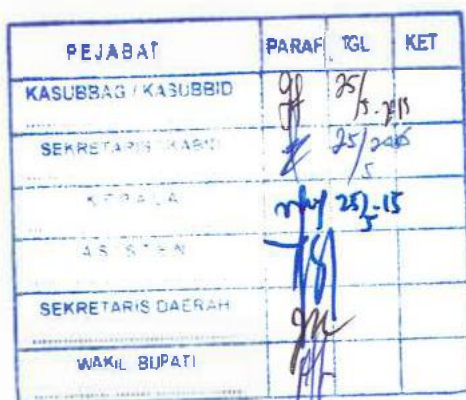 PEJABAT PARAF TGL KET
KASUBBAG / KASUBBID 25/5-2015
SEKRETARIS / KABID 25/5 2015
KEPALA 25/5-15
ASISTEN
SEKRETARIS DAERAH
WAKIL BUPATI